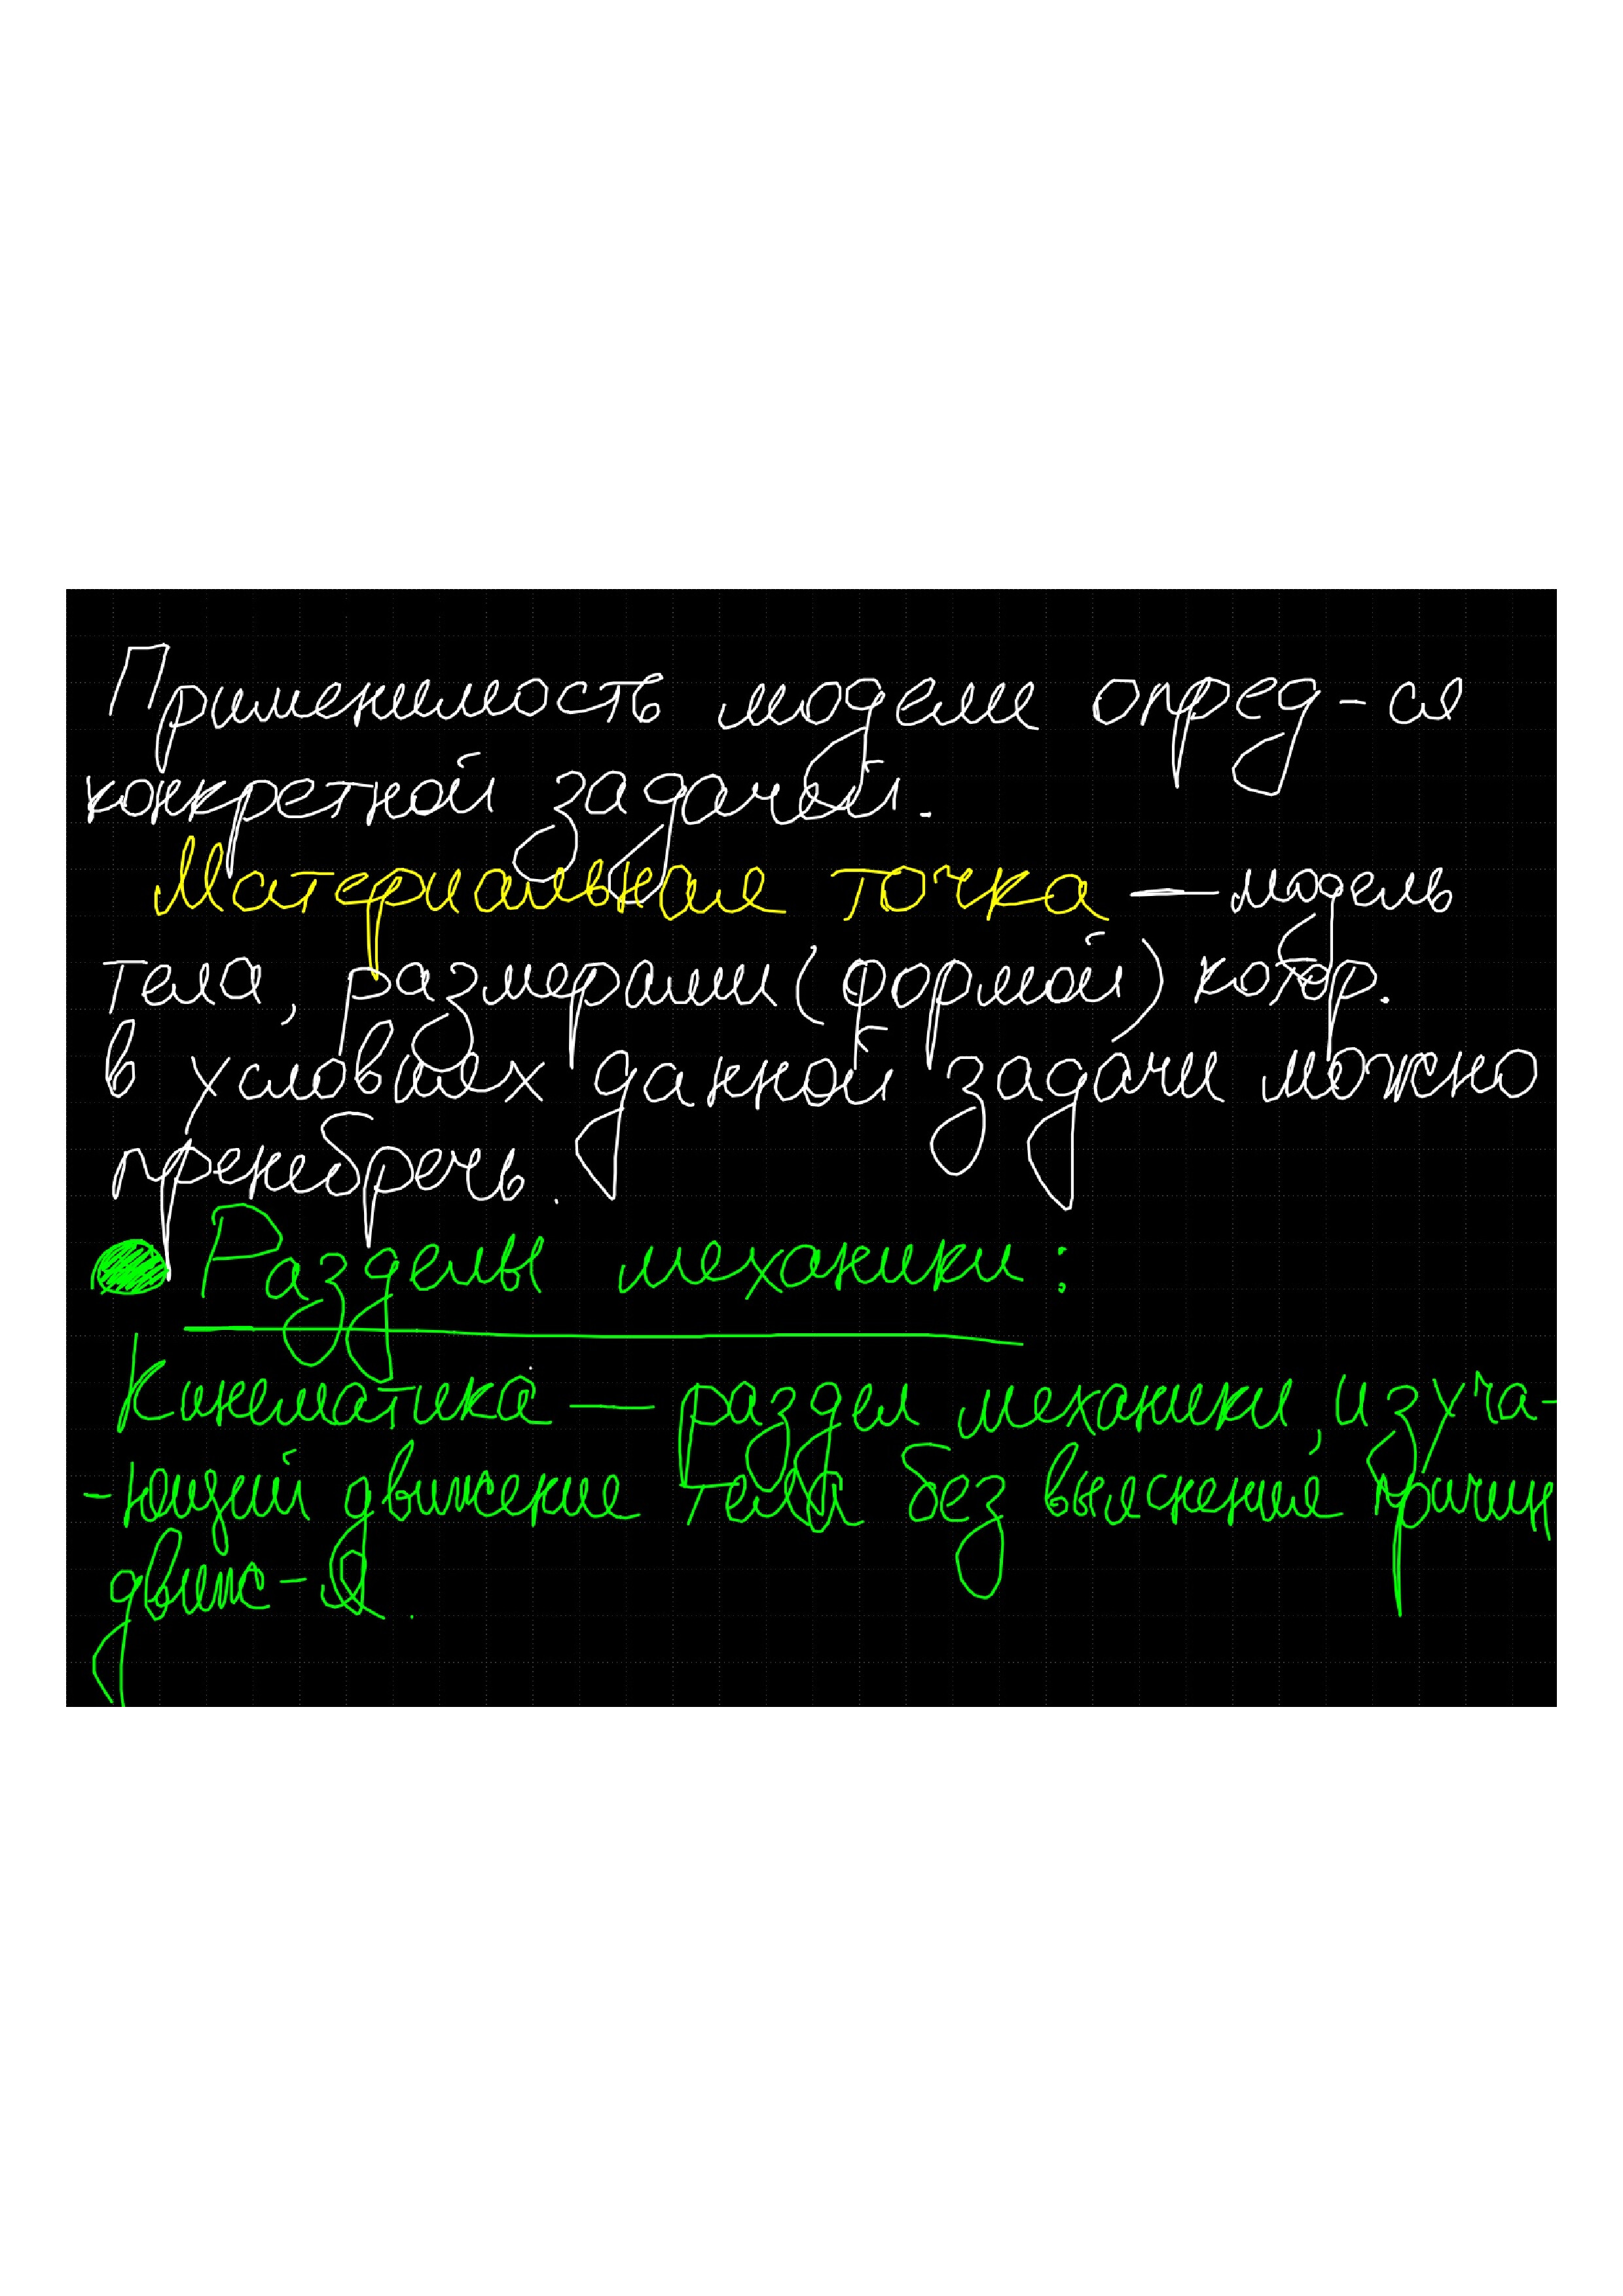 Применимость модели опред-ся
конкретной задачей.
Материальная точка — модель
тела, размерами (формой) котор.
в условиях данной задачи можно
пренебречь.
Разделы механики:
Кинематика — раздел механики, изуча-
-ющий движение тела без выяснения причин
движ-я.